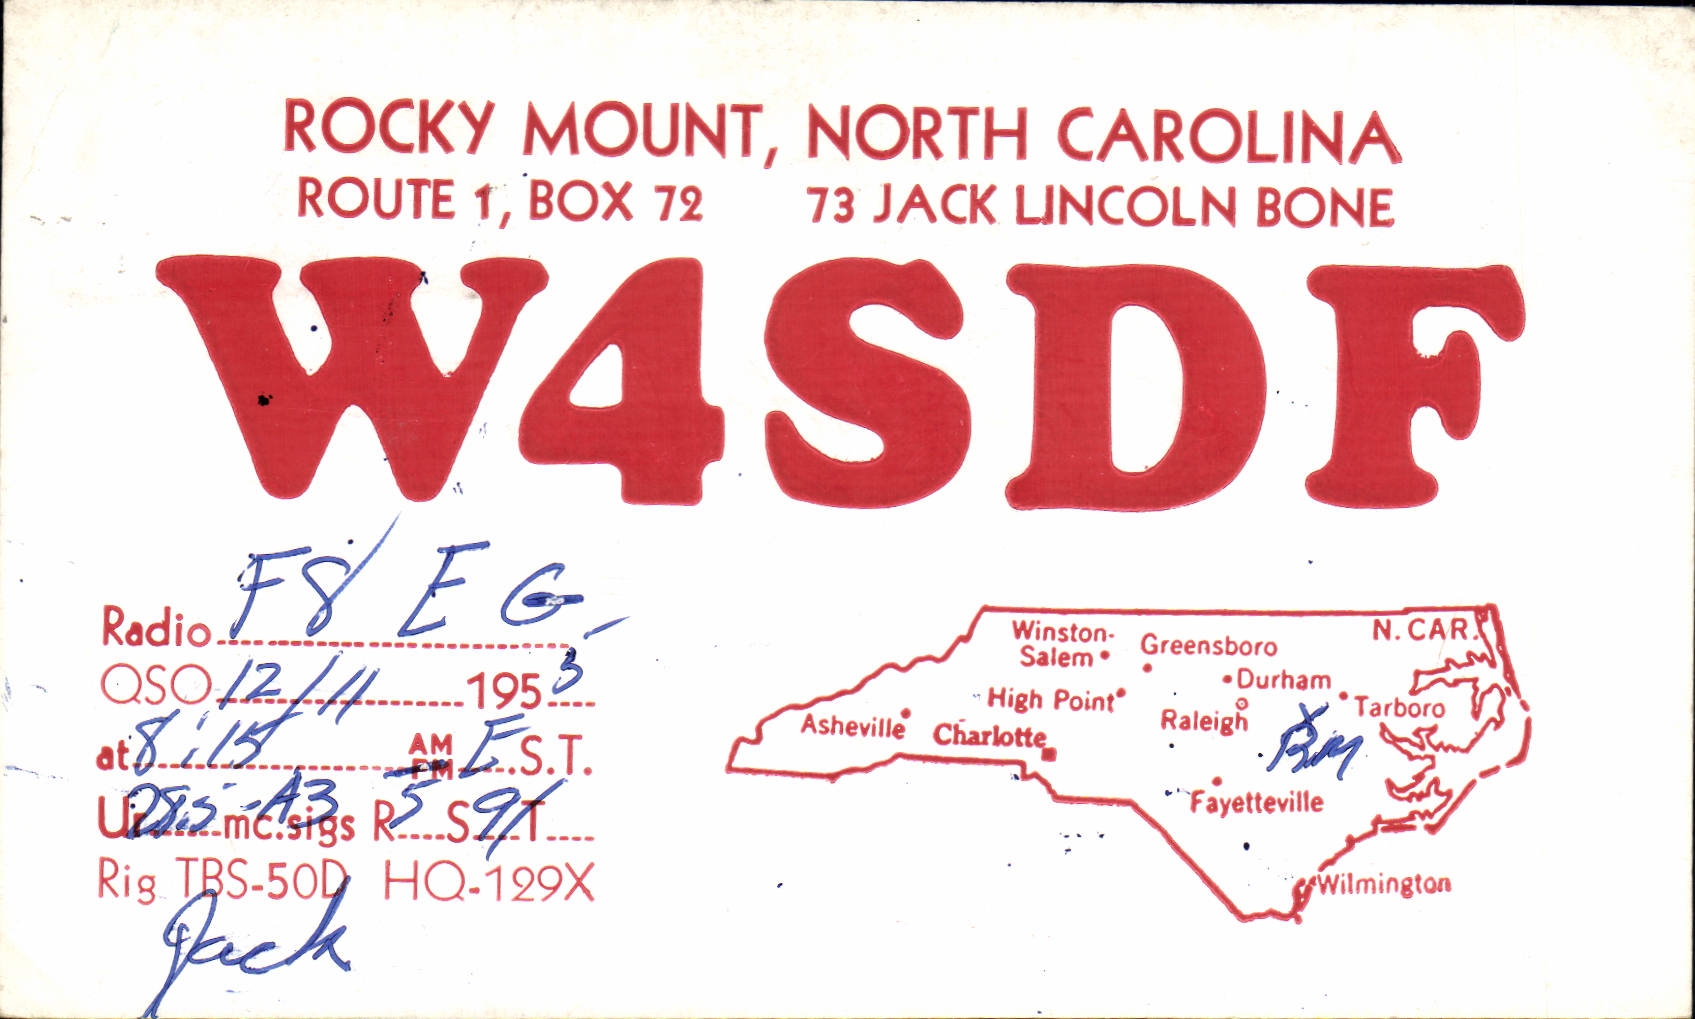 ROCKY MOUNT, NORTH CAROLINA
ROUTE 1, BOX 72 73 JACK LINCOLN BONE
W4SDF
Radio F8 EG
QSO 12/11 1953
at 8:15 AM PM E.S.T.
Ur 28.5-A3 mc. sigs R 5 S 9/ T
Rig TBS-50D HQ-129X
Jack
N. CAR.
Winston-Salem
Greensboro
Durham
High Point
Raleigh
Tarboro
Asheville
Charlotte
X
RM
Fayetteville
Wilmington